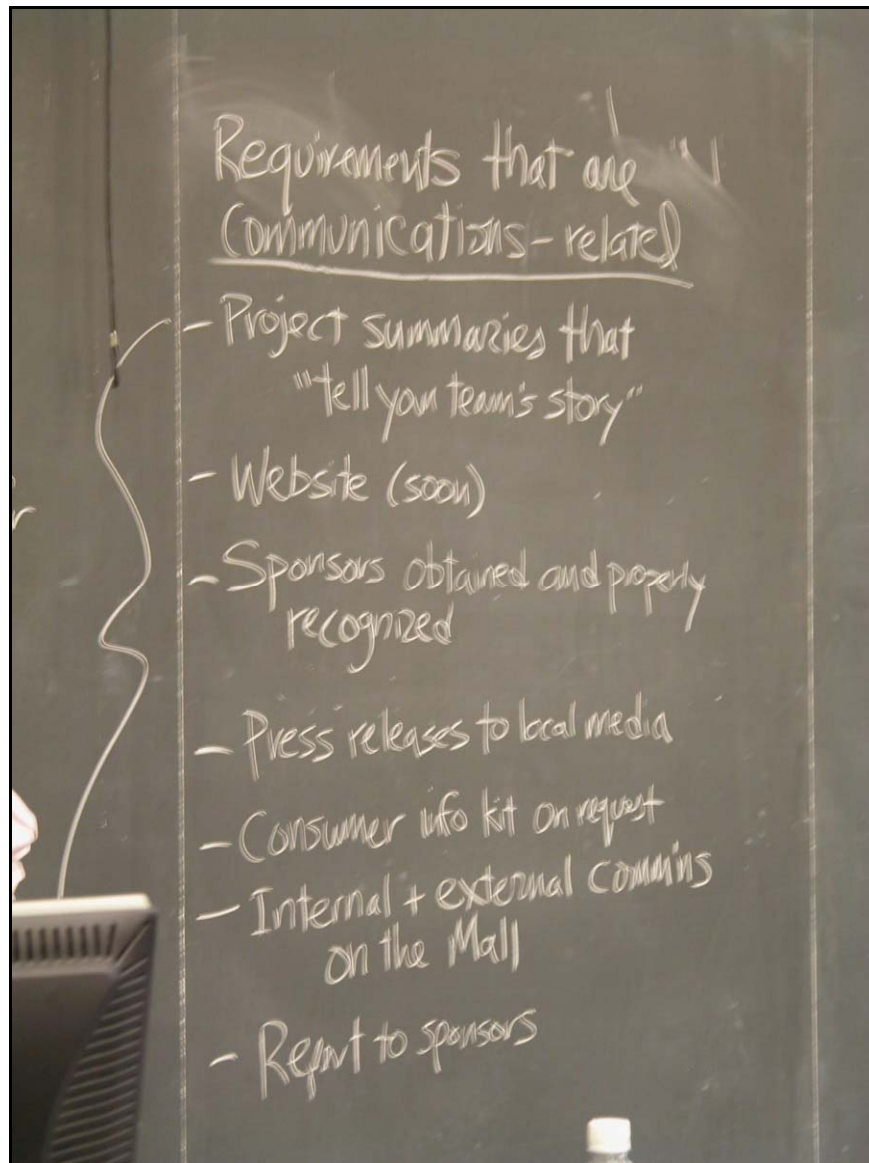 Requirements that are
Communications-related
- Project summaries that
"tell your team's story"
- Website (soon)
- Sponsors obtained and properly
recognized
- Press releases to local media
- Consumer info kit on request
- Internal + external comm'ns
on the Mall
- Report to sponsors